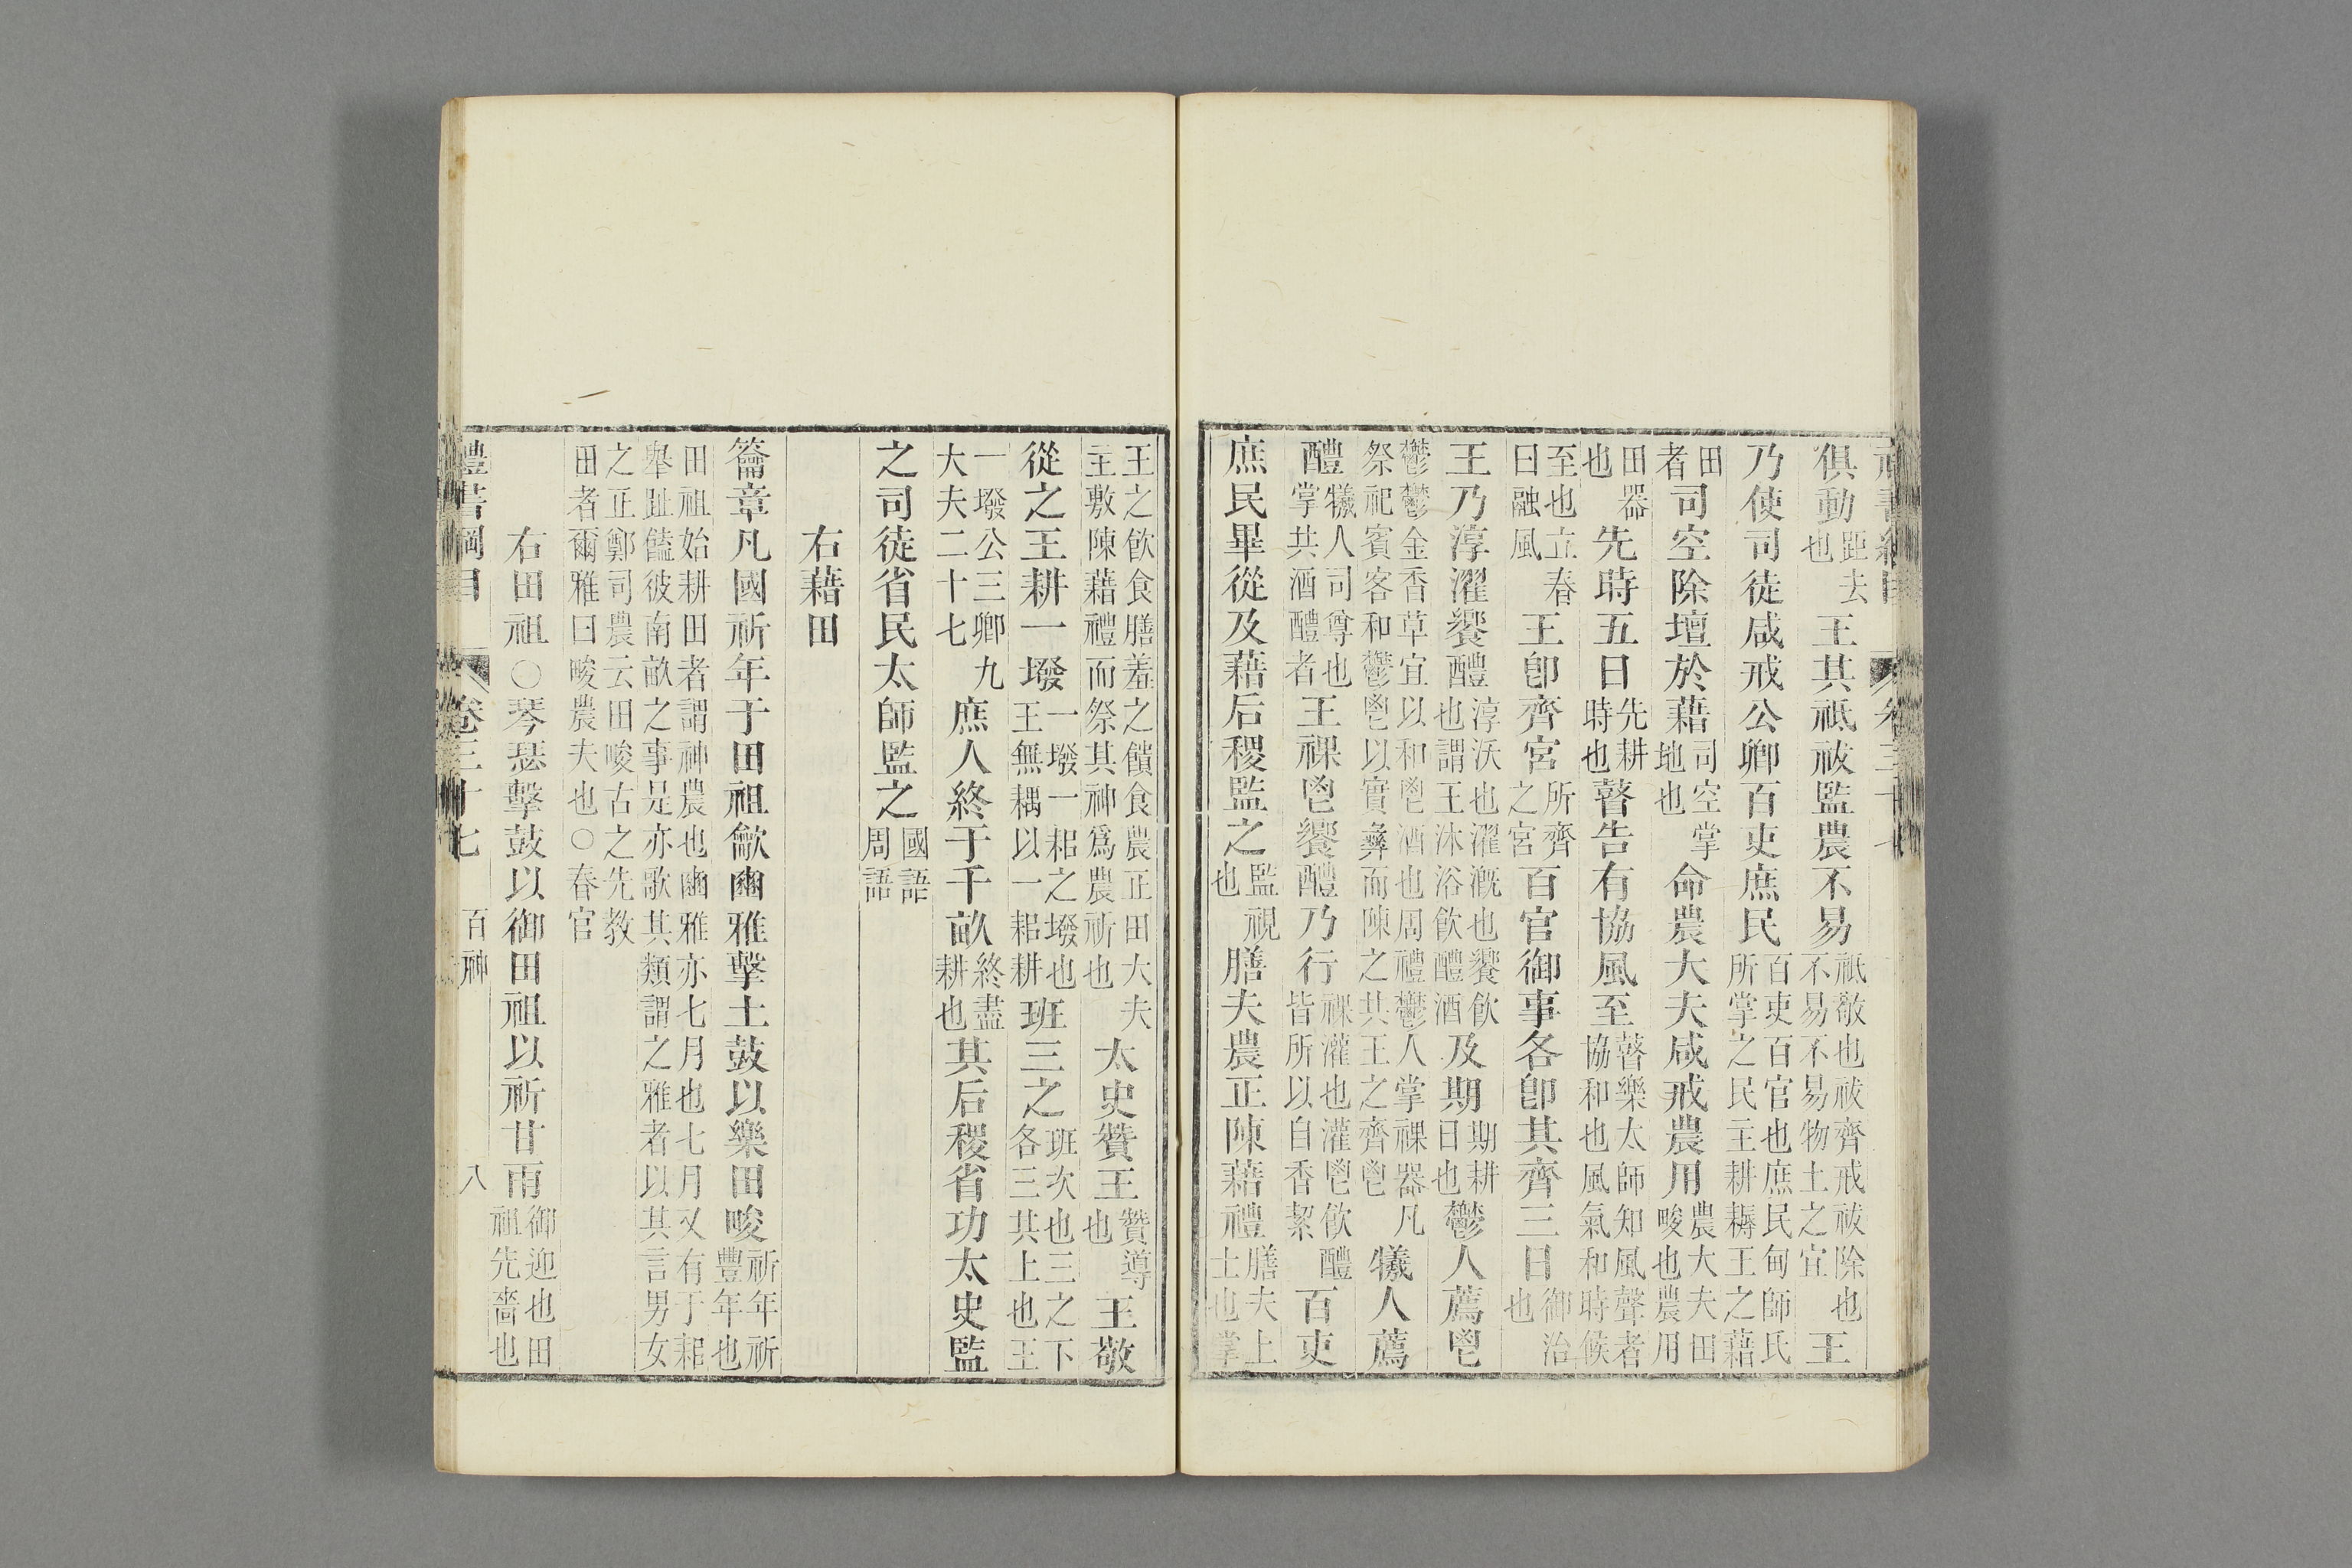 禮書綱目 卷三十七
俱動距去也王其祗祓監農不易祗敬也祓齊戒祓除也不易不易物土之宜王
乃使司徒咸戒公卿百吏庶民百吏百官也庶民甸師氏所掌之民主耕耨王之藉
田者司空除壇於藉司空掌地也命農大夫咸戒農用農大夫田畯也農用
田器也先時五日先耕時也瞽告有協風至瞽樂太師知風聲者協和也風氣和時候
至也立春曰融風王卽齊宮所齊之宮百官御事各卽其齊三日御治也
王乃淳濯饗醴淳沃也濯漑也饗飲也謂王沐浴飲醴酒及期期耕日也鬱人薦鬯
鬱鬱金香草宜以和鬯酒也周禮鬱人掌祼器凡祭祀賓客和鬱鬯以實彝而陳之共王之齊鬯犧人薦
醴犧人司尊也掌共酒醴者王祼鬯饗醴乃行祼灌也灌鬯飲醴皆所以自香絜百吏
庶民畢從及藉后稷監之監視也膳夫農正陳藉禮膳夫上士也掌
王之飲食膳羞之饋食農正田大夫主敷陳藉禮而祭其神爲農祈也太史贊王贊導也王敬
從之王耕一墢一墢一耜之墢也王無耦以一耜耕班三之班次也三之下各三其上也王
一墢公三卿九大夫二十七庶人終于千畝終盡耕也其后稷省功太史監
之司徒省民太師監之國語周語
右藉田
籥章凡國祈年于田祖龡豳雅擊土鼓以樂田畯祈年祈豐年也
田祖始耕田者謂神農也豳雅亦七月也七月又有于耜舉趾饁彼南畝之事是亦歌其類謂之雅者以其言男女
之正鄭司農云田畯古之先教田者爾雅曰畯農夫也○春官
右田祖○琴瑟擊鼓以御田祖以祈甘雨御迎也田祖先嗇也
禮書綱目 卷三十七 百神 八